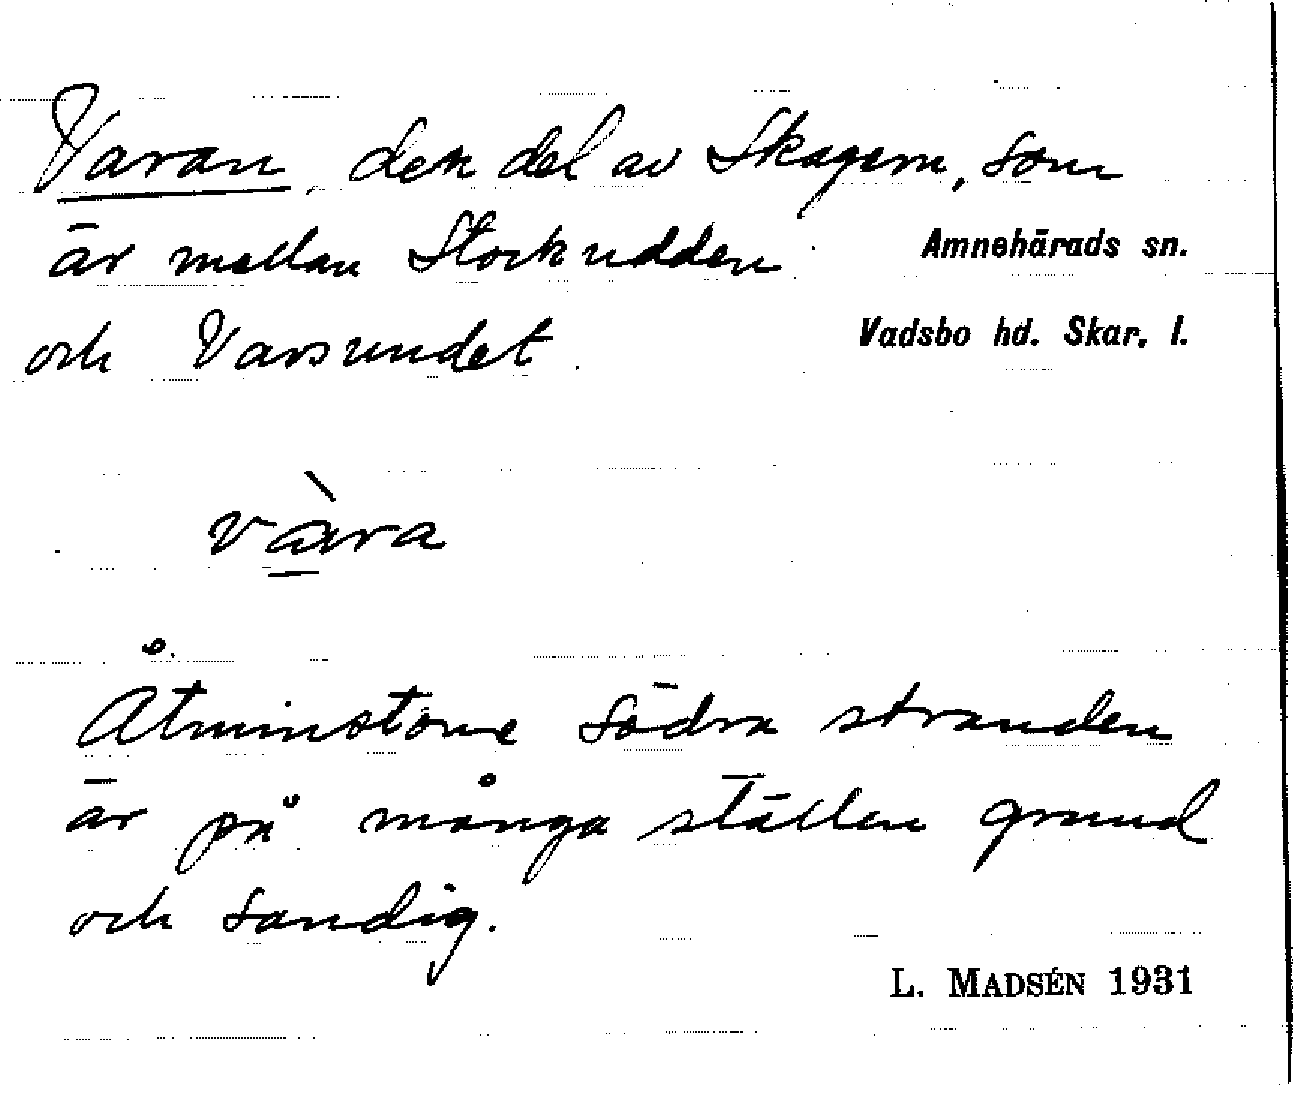 Varan, den del av Skagern, som
är mellan Storkudden
Amnehärads sn.
och Varsundet.
Vadsbo hd. Skar. l.
vàra
Åtminstone södra stranden
är på många ställen grund
och sandig.
L. MADSÉN 1931